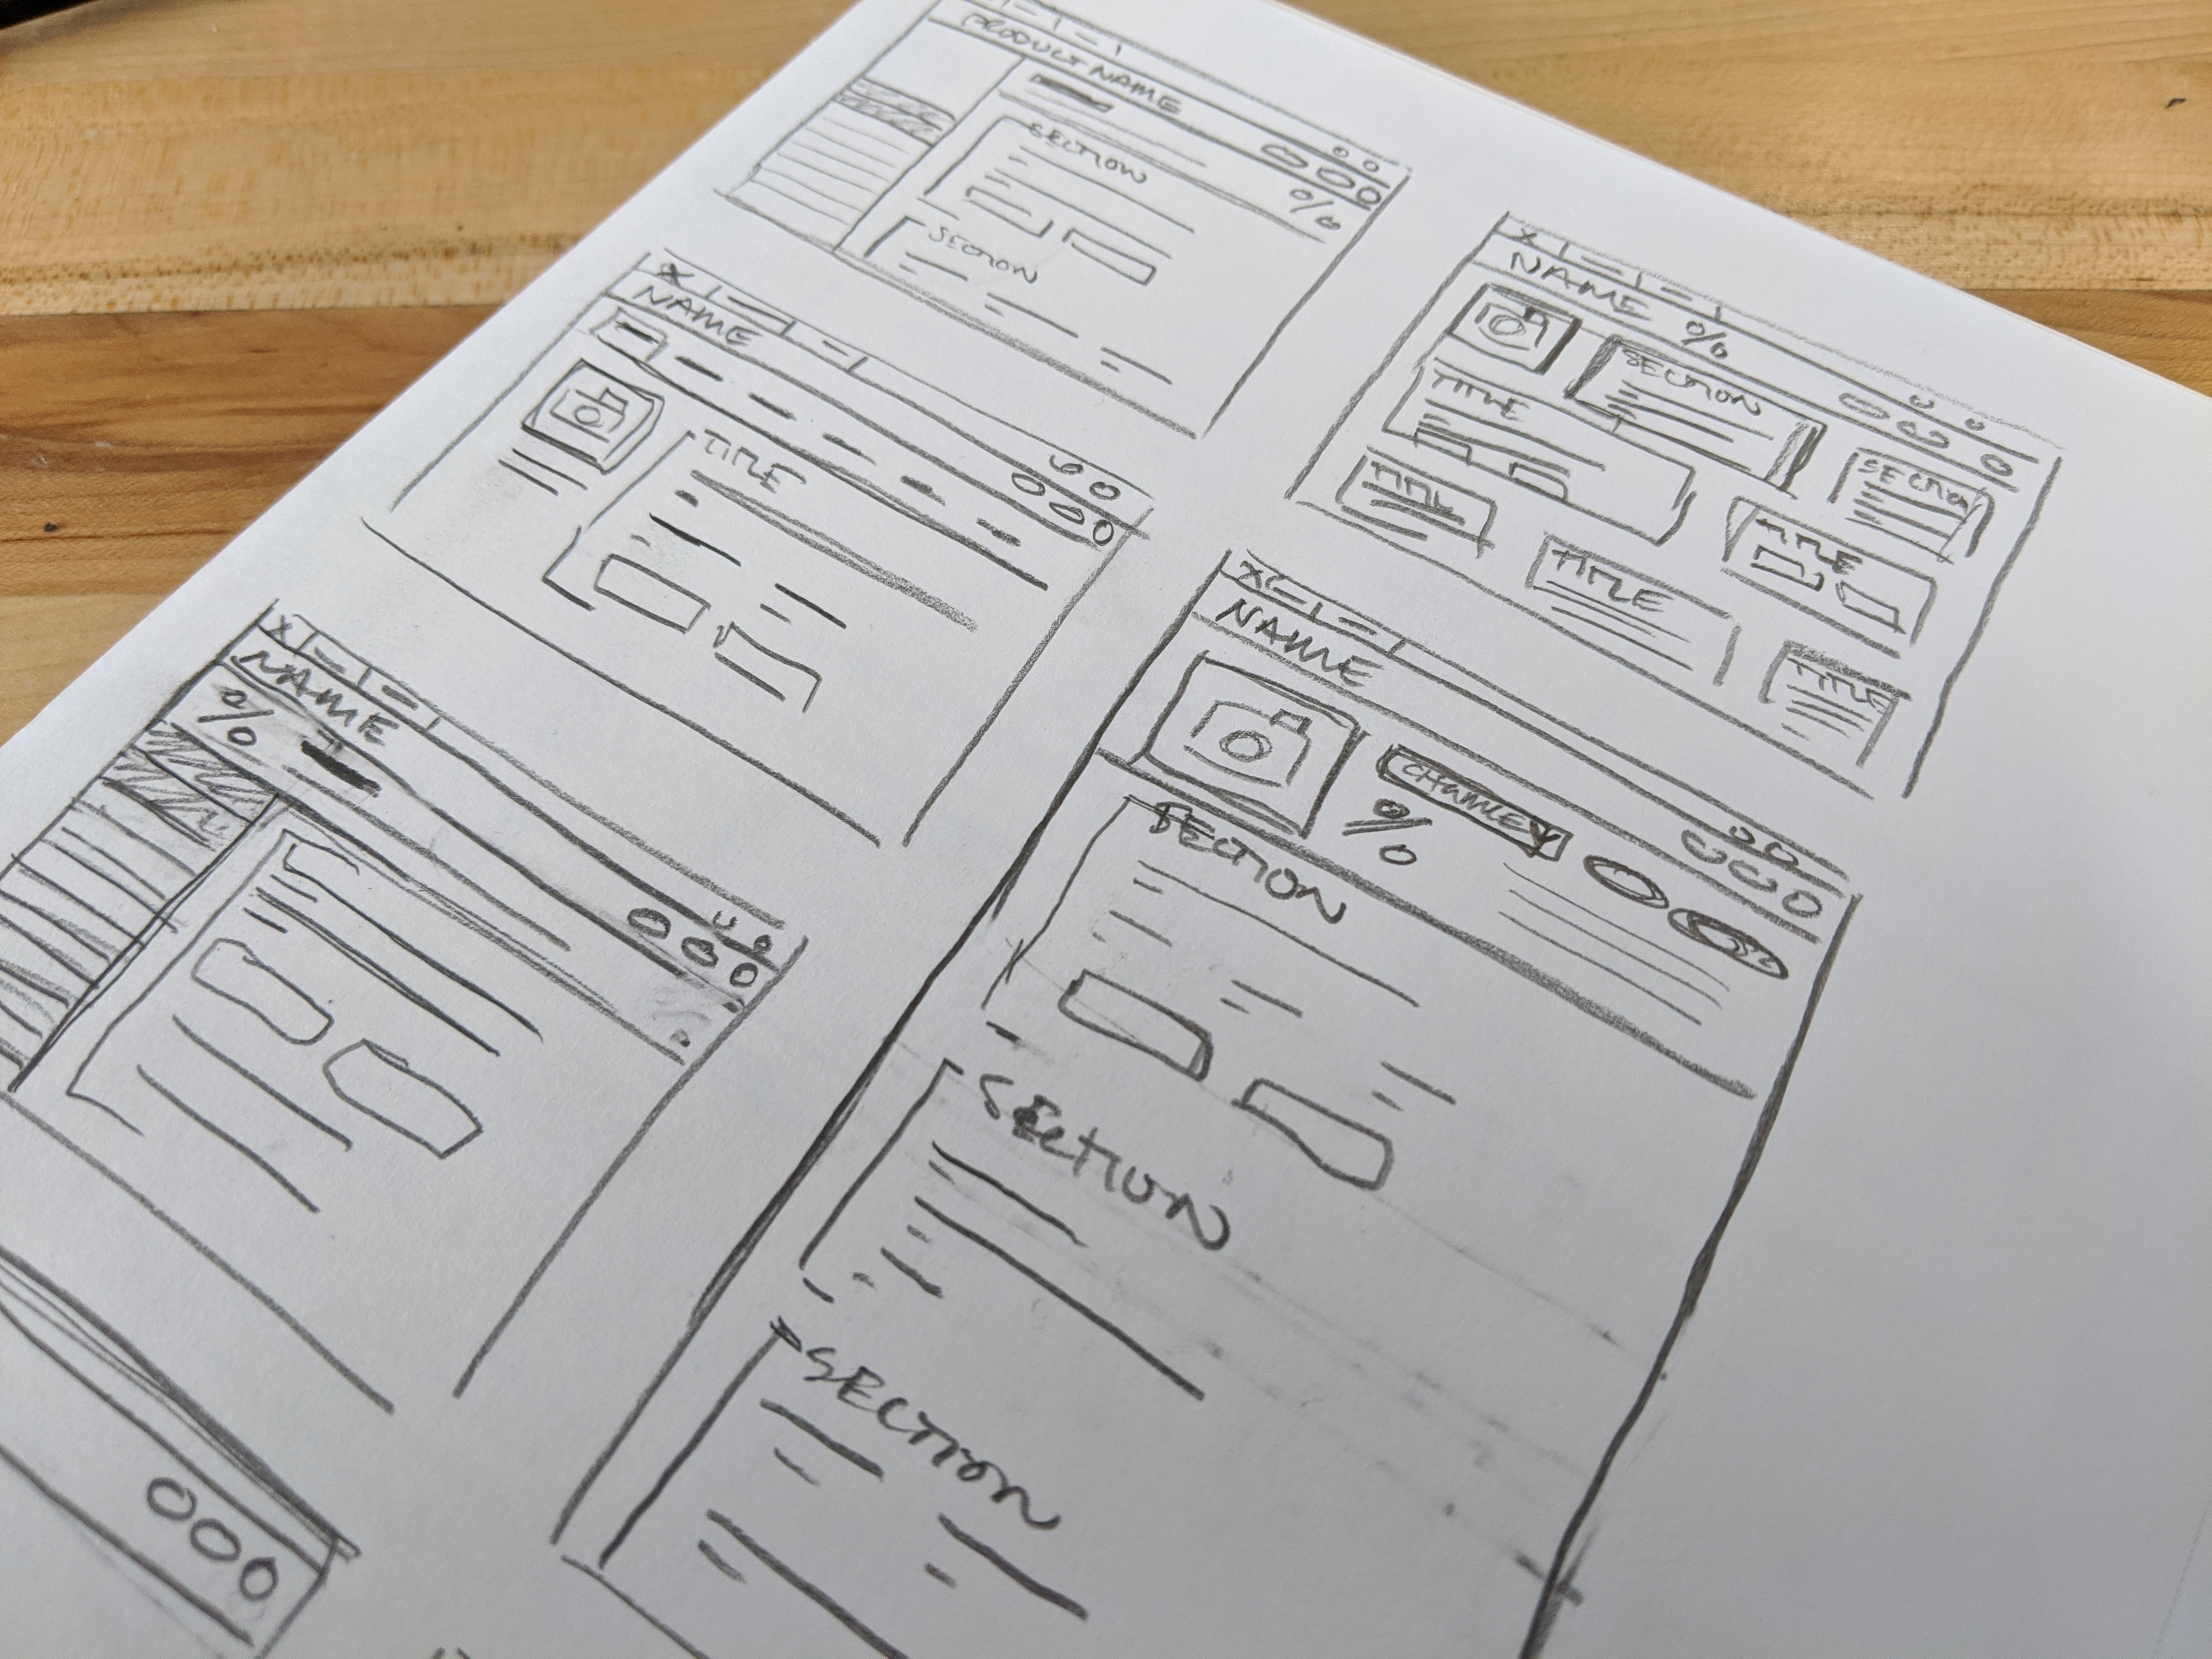 PRODUCT NAME
%
SECTION
SECTION
X
NAME
TITLE
X
NAME
%
X
NAME %
SECTION
TITLE
SECTION
TITLE
TITLE
TITLE
TITLE
X
NAME
%
SECTION
SECTION
SECTION